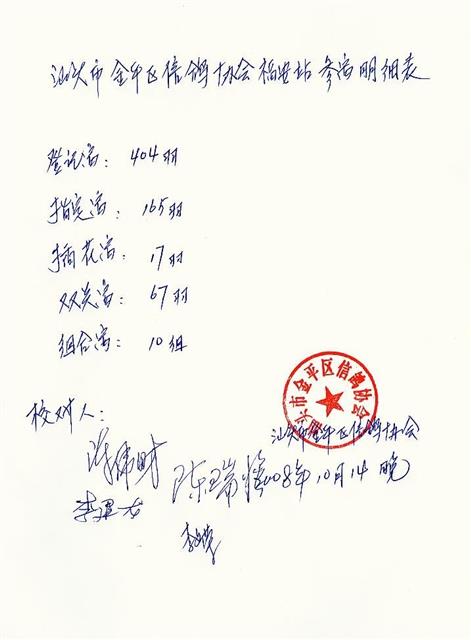 汕头市金平区信鸽协会福安站参赛明细表
登记赛: 404羽
指定赛: 165羽
插花赛: 17羽
双关赛: 67羽
组合赛: 10组
汕头市金平区信鸽协会
校对人:
汕头市金平区信鸽协会
陈瑞
2008年10月14晚